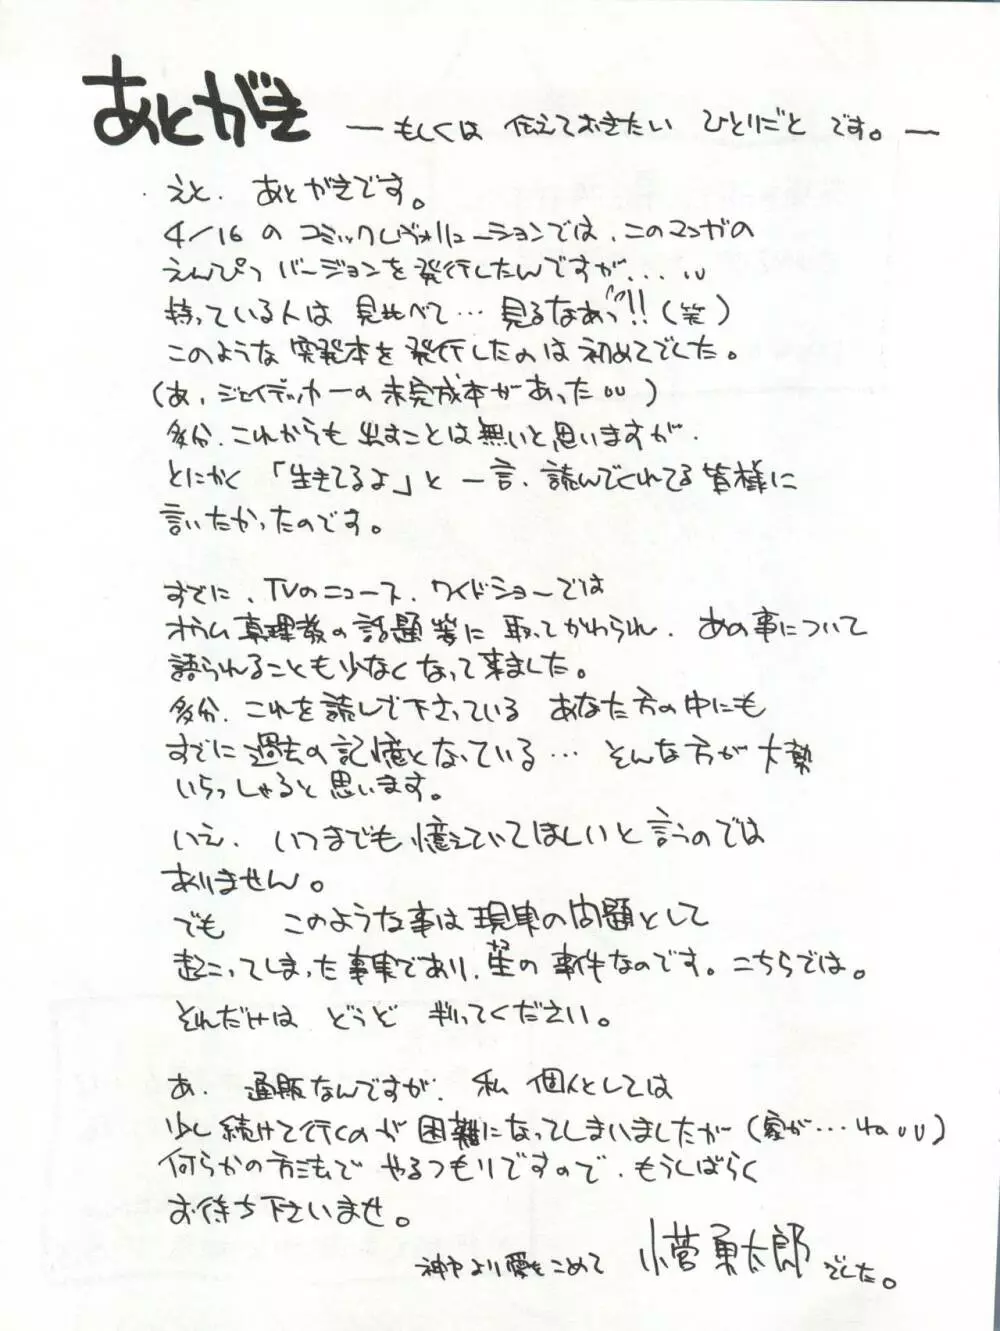 あとがき ―もしくは 伝えておきたい ひとりごと です。―
えと、あとがきです。
4/16 の コミックレヴォリューションでは、このマンガの
えんぴつ バージョンを発行したんですが、...
持っている人は 見比べて… 見るなあっ!!(笑)
このような 突発本を 発行したのは 初めてでした。
(あ、ジェイデッカーの未完成本があった)
多分、これからも 出すことは無いと思いますが、
とにかく 「生きてるよ」と 一言、読んでくれてる皆様に
言いたかったのです。
すでに、TVのニュース、ワイドショーでは
オウム真理教の話題等に 取ってかわられ、 あの事について
語られることも少なくなって来ました。
多分、これを読んで下さっている あなた方の中にも
すでに過去の記憶となっている… そんな方が大勢
いらっしゃると思います。
いえ、 いつまでも憶えていてほしいと言うのでは
ありません。
でも このような事は現実の問題として
起こってしまった事実であり、生の事件なのです。こちらでは。
それだけは どうぞ 判ってください。
あ、 通販なんですが、 私 個人としては
少し続けて行くのが困難になってしまいましたが (家が…ね)
何らかの方法で やるつもりですので、もうしばらく
お待ち下さいませ。
神戸より愛をこめて 小菅勇太郎でした。